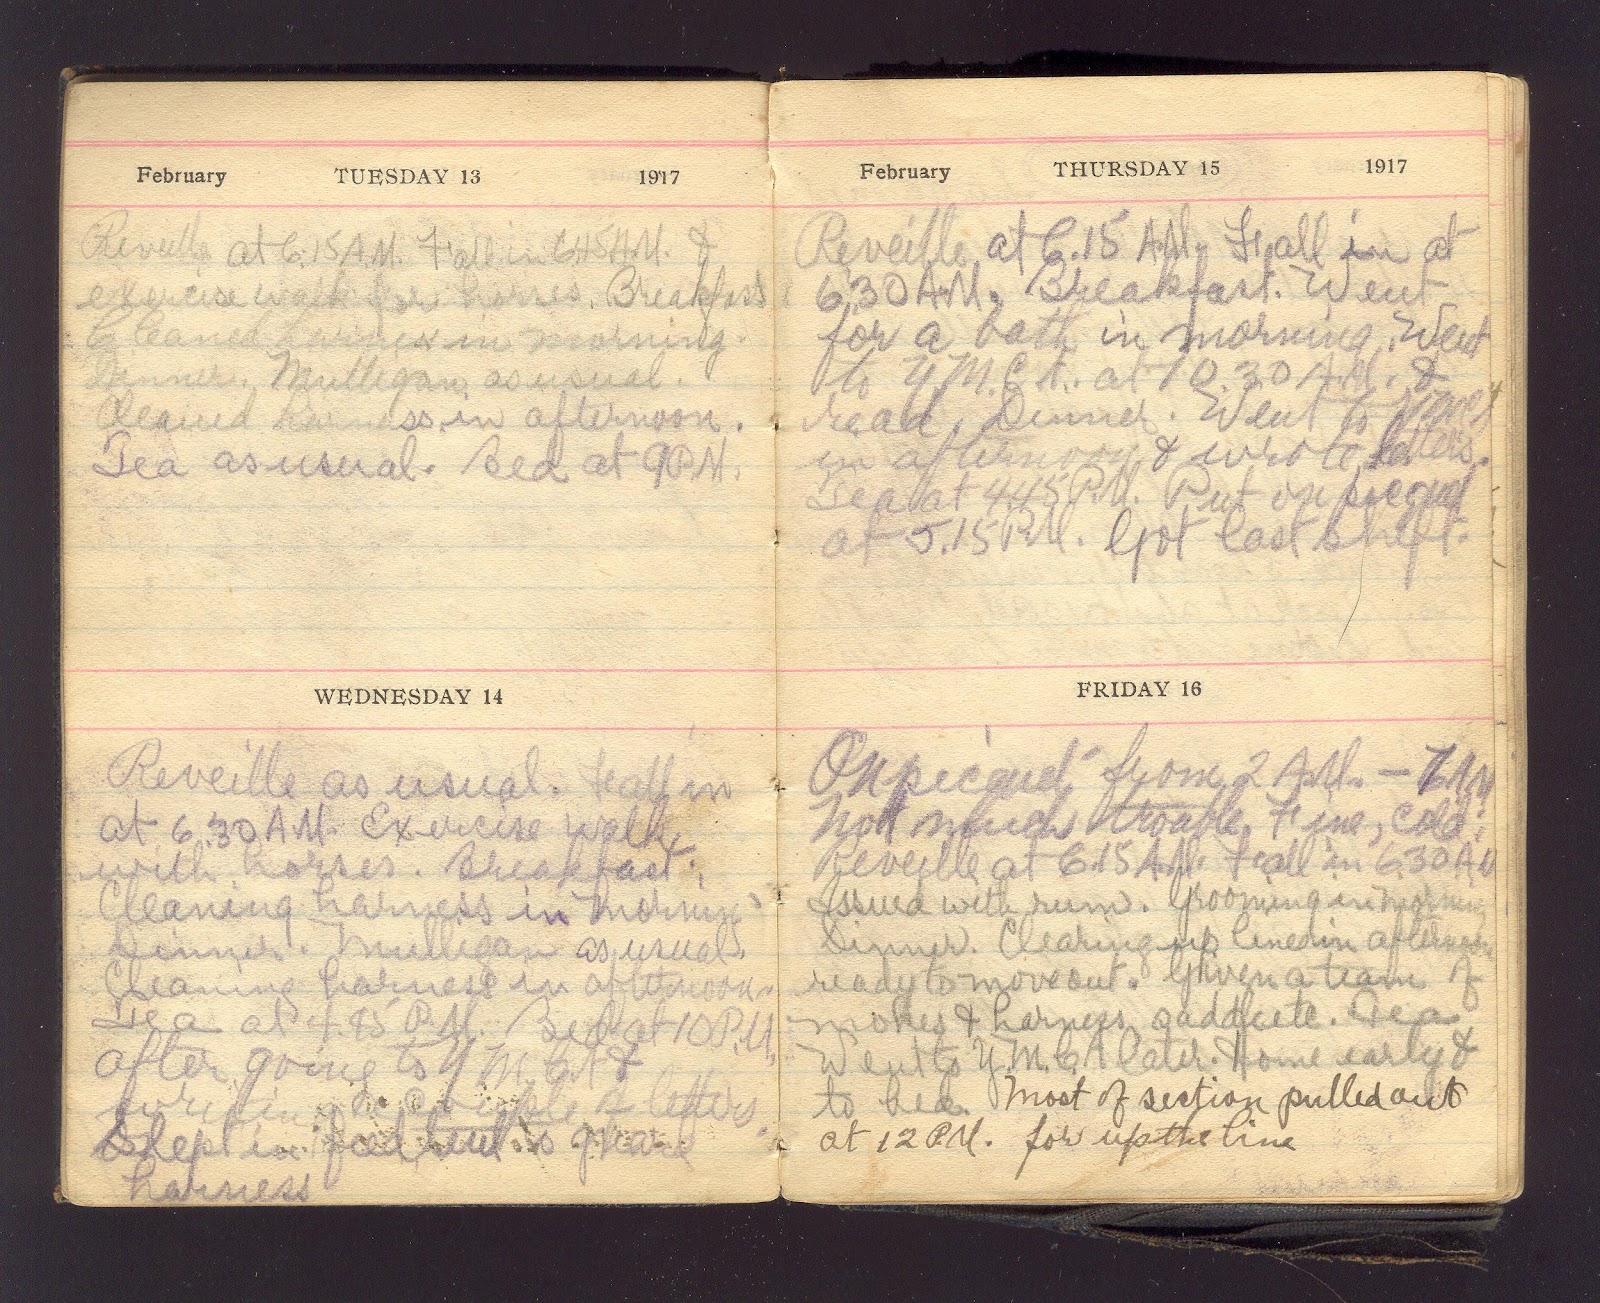 February TUESDAY 13 1917
Reveille at 6.15 A.M. Fall in 6.45 A.M. &
exercise walk for horses. Breakfast
Cleaned harness in morning.
Dinner. Mulligan as usual.
Cleaned harness in afternoon.
Tea as usual. Bed at 9 P.M.
WEDNESDAY 14
Reveille as usual. Fall in
at 6.30 A.M. Exercise walk
with horses. Breakfast.
Cleaning harness in morning
Dinner. Mulligan as usual.
Cleaning harness in afternoon.
Tea at 4.45 P.M. Bed at 10 P.M.
after going to Y.M.C.A &
writing a couple of letters.
Slept in feed
harness
February THURSDAY 15 1917
Reveille at 6.15 A.M. Fall in at
6.30 A.M. Breakfast. Went
for a bath in morning. Went
to Y.M.C.A. at 10.30 A.M. &
read. Dinner. Went to
in afternoon & wrote letters.
Tea at 4.45 P.M. Put on picquet
at 5.15 P.M. Got last shift.
FRIDAY 16
On picquet from 2 A.M. —
Not much trouble. Fine, cold.
Reveille at 6.15 A.M. Fall in 6.30 A.M
Issued with rum. Grooming in morning
Dinner. Clearing up lines in afternoon
ready to move out. Given a team of
mokes & harness, saddle etc. Tea
Went to Y.M.C.A later. Home early &
to bed. Most of section pulled out
at 12 P.M. for up the line